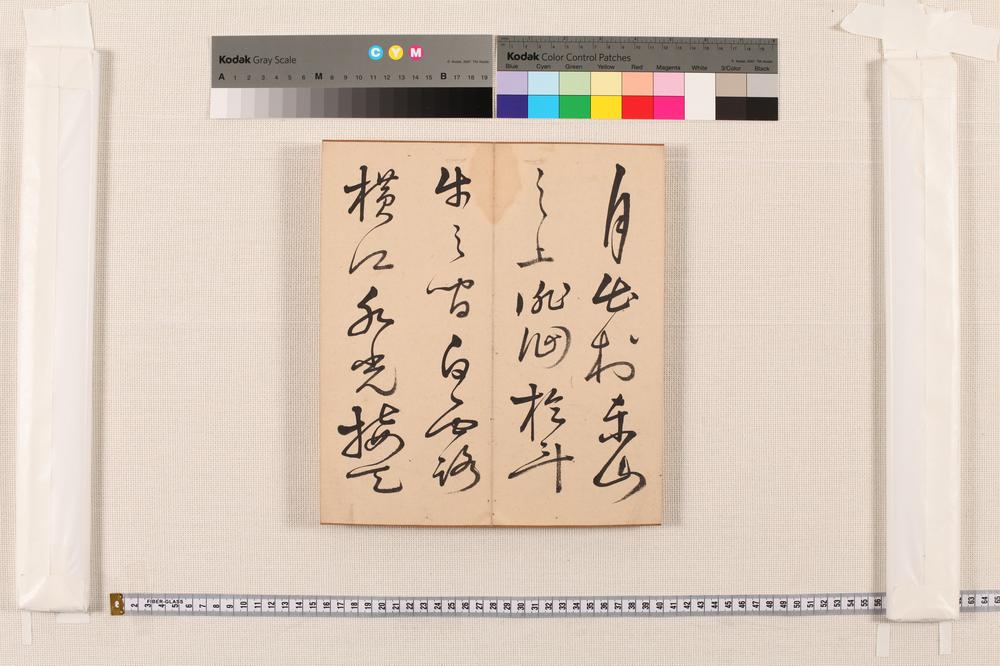 月出於東山
之上徘徊於斗
牛之間白露
橫江水光接天
Kodak Gray Scale
C Y M
A 1 2 3 4 5 6 M 8 9 10 11 12 13 14 15 B 17 18 19
Kodak Color Control Patches
Blue Cyan Green Yellow Red Magenta White 3/Color Black
FIBER-GLASS
2 3 4 5 6 7 8 9 10 11 12 13 14 15 16 17 18 19 20 21 22 23 24 25 26 27 28 29 30 31 32 33 34 35 36 37 38 39 40 41 42 43 44 45 46 47 48 49 50 51 52 53 54 55 56 63 64 65